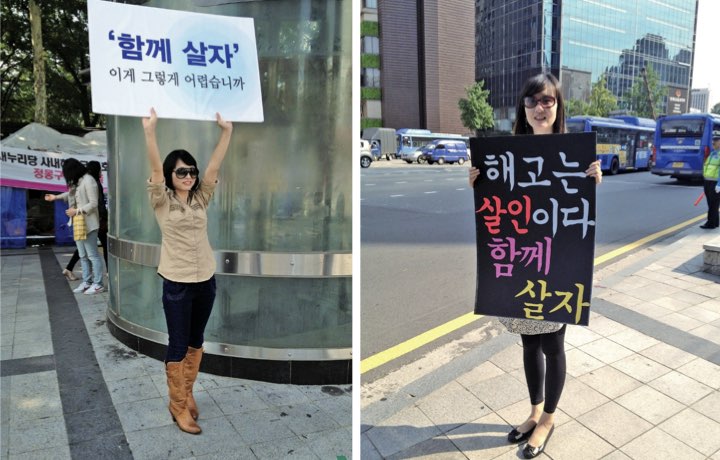 '함께 살자'
이게 그렇게 어렵습니까
새누리당 사내하
정몽구
해고는
살인이다
함께
살자